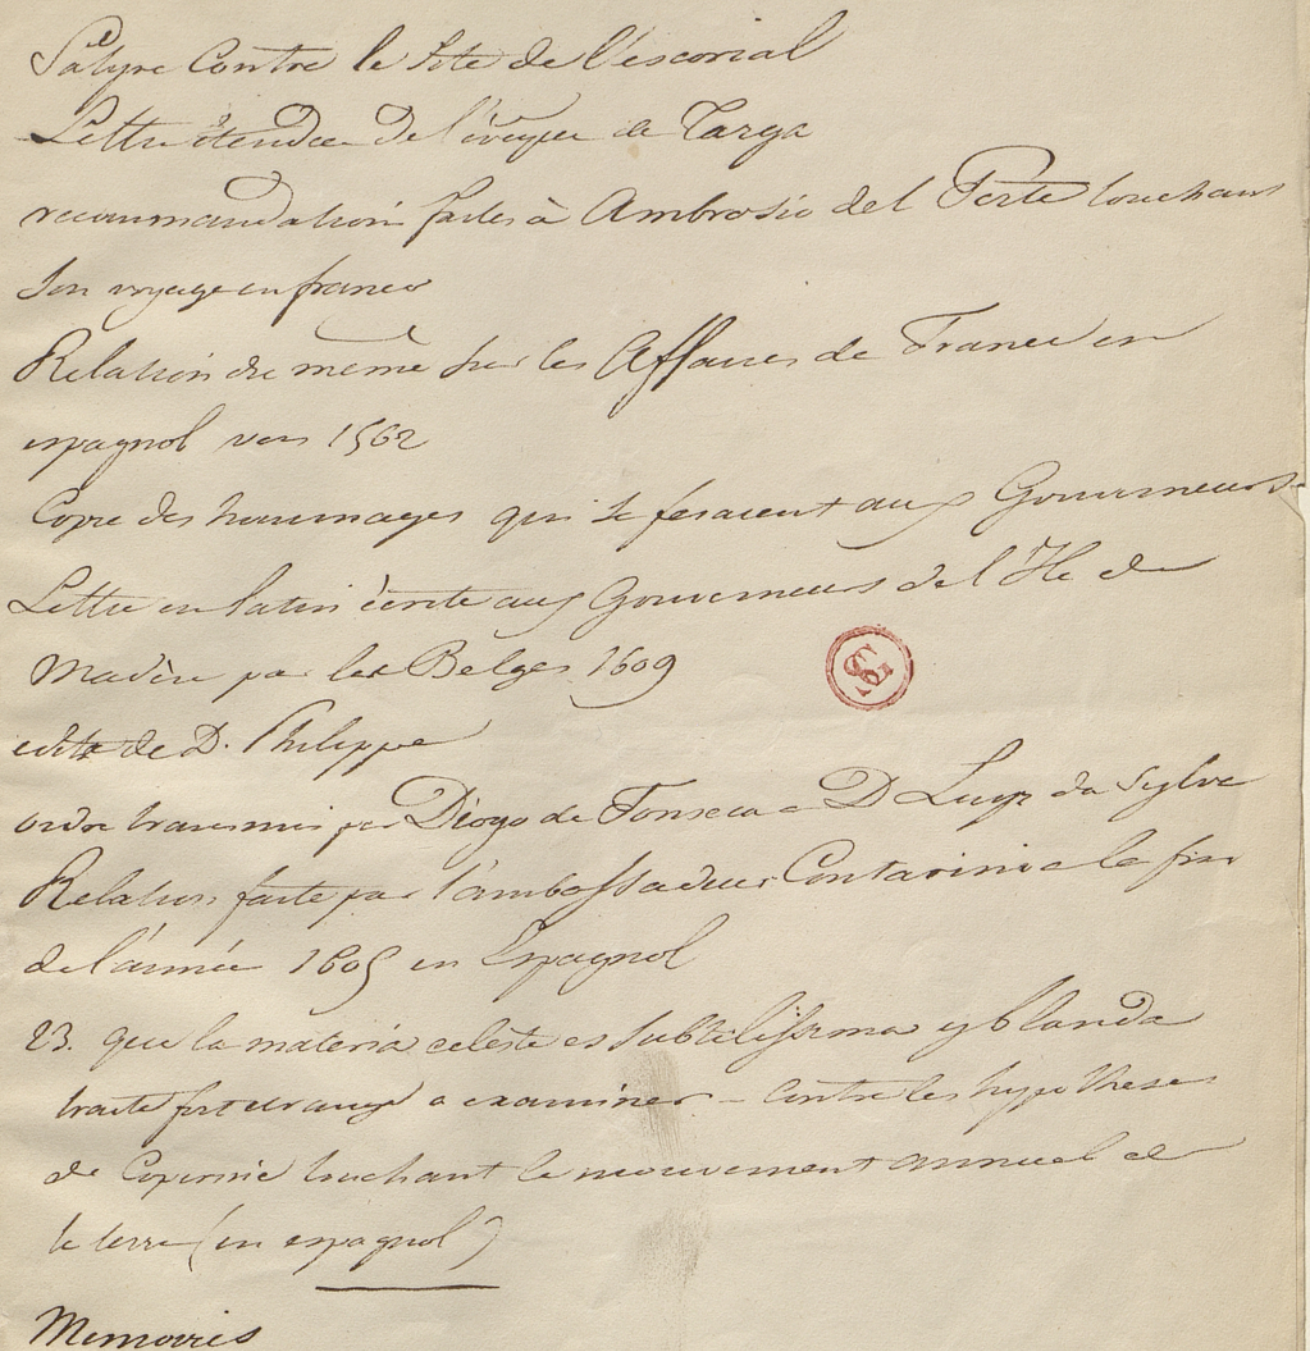 Satyre Contre le Site de l'escorial
Lettre étendue de l'évêque de Targa
recommandation faites à Ambrosio del Porte touchant
son voyage en france
Relation du même sur les Affaires de France en
espagnol vers 1562
Copie des hommages qui se feraient aux Gouverneurs
Lettre en latin écrite aux Gouverneurs de l'Ile de
Madère par les Belges 1609
edits de D. Philippe
ordre transmis par Diogo de Fonseca a D Luys da Sylva
Relation faite par l'ambassadeur Contarini a la fin
de l'année 1605 en Espagnol
23. que la materia celeste es subtilissima y blanda
traité fort étrange a examiner - Contre les hypotheses
de Copernic touchant le mouvement annuel de
la terre (en espagnol)
Memoires
SG